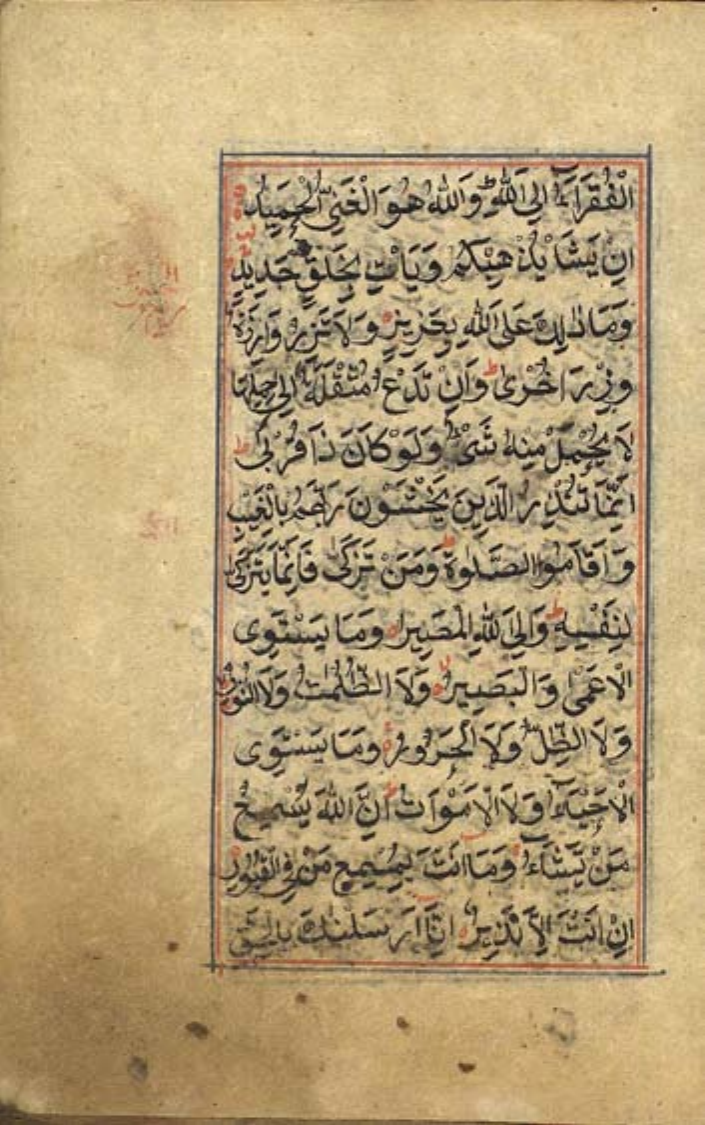 الْفُقَرَاءُ اِلَى اللّٰهِ ط وَاللّٰهُ هُوَ الْغَنِىُّ الْحَمِيْدُ
اِنْ يَّشَاْ يُذْهِبْكُمْ وَيَاْتِ بِخَلْقٍ جَدِيْدٍ
وَمَا ذٰلِكَ عَلَى اللّٰهِ بِعَزِيْزٍ وَلَا تَزِرُ وَازِرَةٌ
وِّزْرَ اُخْرٰى ط وَاِنْ تَدْعُ مُثْقَلَةٌ اِلٰى حِمْلِهَا
لَا يُحْمَلْ مِنْهُ شَىْءٌ وَّلَوْ كَانَ ذَا قُرْبٰى ط
اِنَّمَا تُنْذِرُ الَّذِيْنَ يَخْشَوْنَ رَبَّهُمْ بِالْغَيْبِ
وَاَقَامُوا الصَّلٰوةَ ط وَمَنْ تَزَكّٰى فَاِنَّمَا يَتَزَكّٰى
لِنَفْسِهٖ ط وَاِلَى اللّٰهِ الْمَصِيْرُ وَمَا يَسْتَوِى
الْاَعْمٰى وَالْبَصِيْرُ وَلَا الظُّلُمٰتُ وَلَا النُّوْرُ
وَلَا الظِّلُّ وَلَا الْحَرُوْرُ وَمَا يَسْتَوِى
الْاَحْيَآءُ وَلَا الْاَمْوَاتُ ط اِنَّ اللّٰهَ يُسْمِعُ
مَنْ يَّشَآءُ وَمَا اَنْتَ بِمُسْمِعٍ مَّنْ فِى الْقُبُوْرِ
اِنْ اَنْتَ اِلَّا نَذِيْرٌ اِنَّا اَرْسَلْنٰكَ بِالْحَقِّ